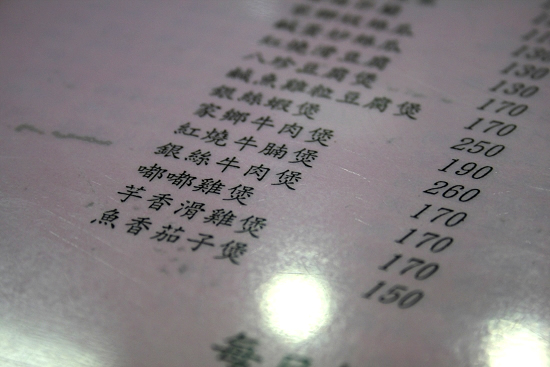 紅燒滑豆腐 130
八珍豆腐煲 170
鹹魚雞粒豆腐煲 170
銀絲蝦煲 250
家鄉牛肉煲 190
紅燒牛腩煲 260
銀絲牛肉煲 170
嘟嘟雞煲 170
芋香滑雞煲 170
魚香茄子煲 150